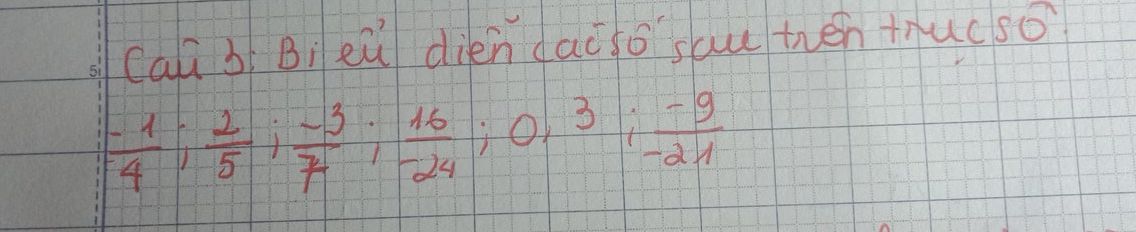 Câu 3: Biểu diễn các số sau trên trục số.
\frac{-1}{4}; \frac{2}{5}; \frac{-3}{7}; \frac{16}{-24}; 0,3; \frac{-9}{-21}